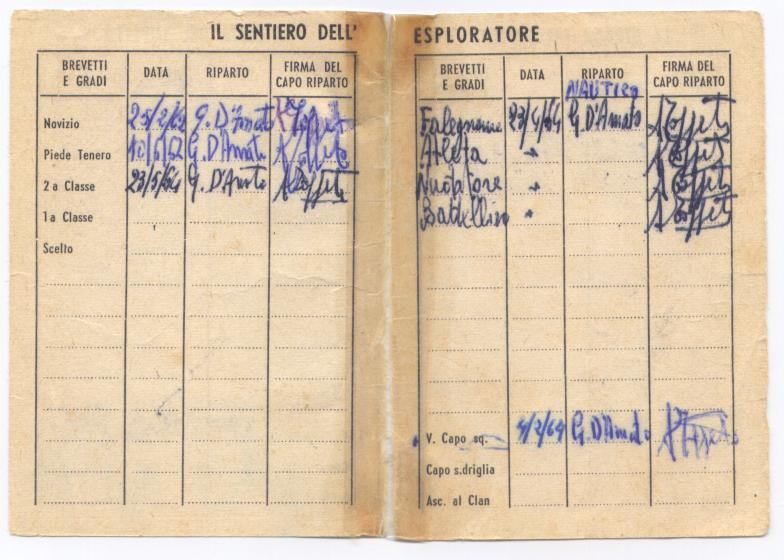 IL SENTIERO DELL' ESPLORATORE
BREVETTI E GRADI DATA RIPARTO FIRMA DEL CAPO RIPARTO
Novizio 25/2/62 G. D'Amato
Piede Tenero G. D'Amato
2a Classe 23/5/64 G. D'Amato
1a Classe
Scelto
BREVETTI E GRADI DATA RIPARTO FIRMA DEL CAPO RIPARTO
NAUTICO
Falegname 23/4/64 G. D'Amato
Atleta "
Nuotatore "
Battelliere "
V. Capo sq. 4/2/64 G. D'Amato
Capo s.driglia
Asc. al Clan